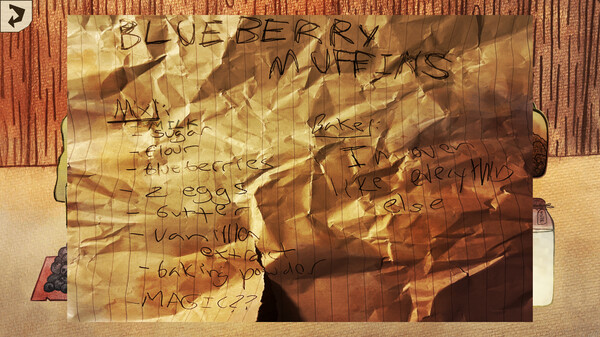 BLUEBERRY
MUFFINS
MIX:
- milk
- sugar
- flour
- blueberries
- 2 eggs
- butter
- vanilla
extract
- baking powder
- MAGIC??
Bake:
In oven
like everything
else